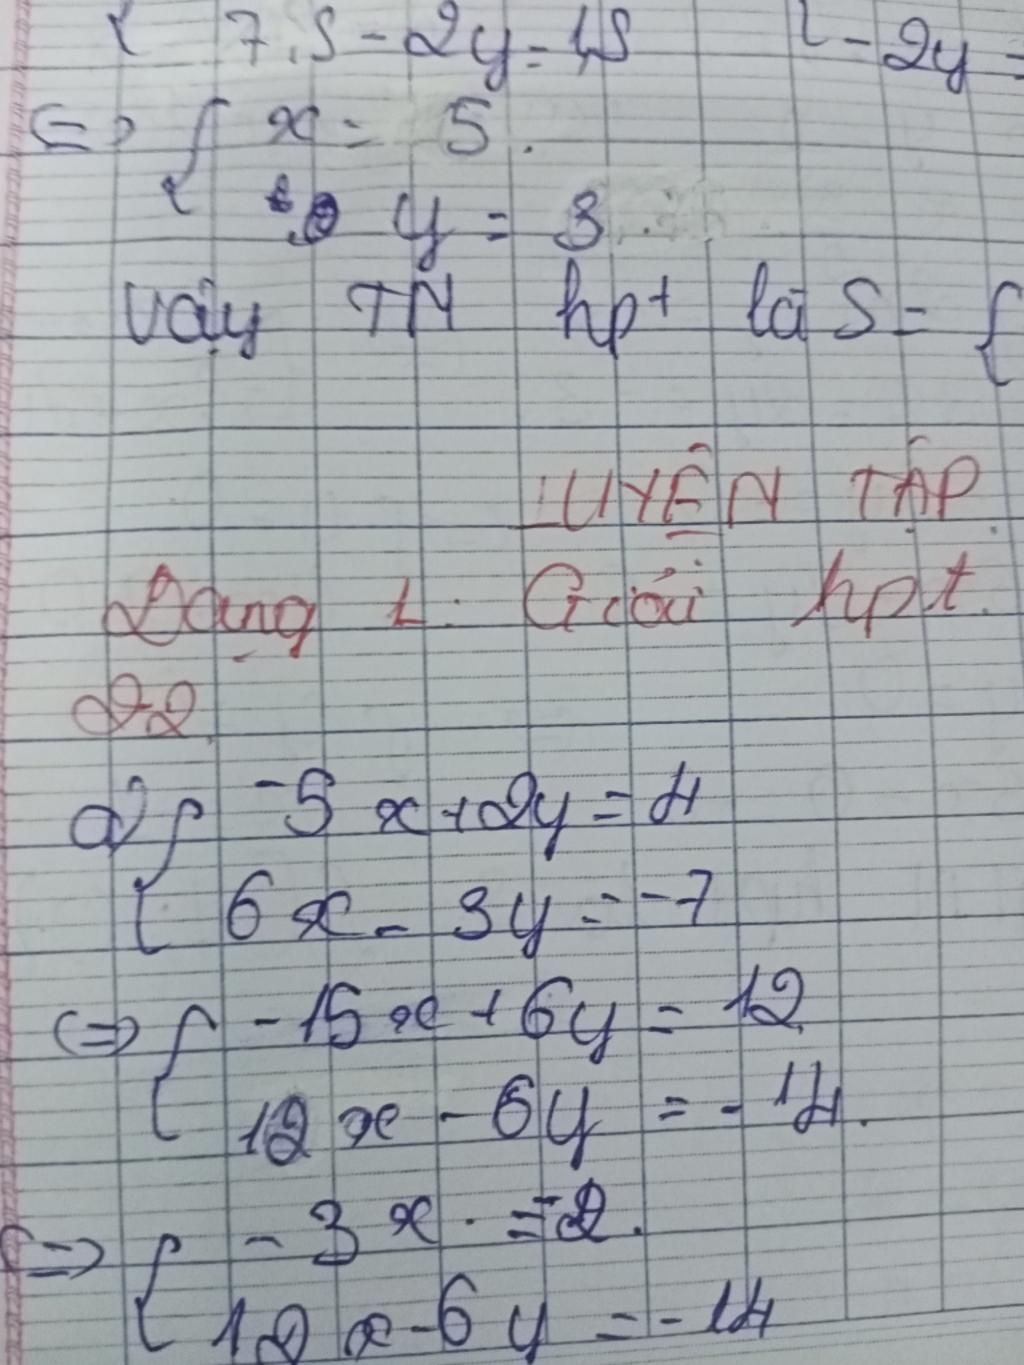 { 7.5 - 2y = 1,5 { - 2y =
<=> { x = 5.
y = 3
Vậy TN hpt là S = {
LUYỆN TẬP
Dạng 1: Giải hpt.
22
a) { -5x + 2y = 4
{ 6x - 3y = -7
<=> { -15x + 6y = 12
{ 12x - 6y = -14.
<=> { -3x = -2.
{ 12x - 6y = -14